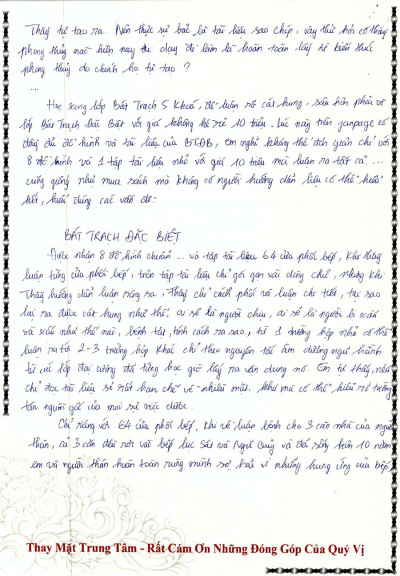 Thầy tự tạo ra. Nên thực sự bảo là tài liệu sao chép, vậy thử hỏi có thầy
phong thủy nào hiện nay thu dạy để làm là hoàn toàn lấy từ kiến thức
phong thủy do chính họ tự tạo ?
...
Học xong lớp Bát Trạch 5 Khoá, để luận số cát hung - sâu hơn phải vô
lớp Bát Trạch Đặc Biệt với giá không hề rẻ 10 triệu. Lúc này trên fanpage có
đầy đủ đề hình và tài liệu của BTĐB, em nghĩ không thể đơn giản chỉ với
8 đề hình và 1 tập tài liệu nhỏ với giá 10 triệu mà luận ra tất cả ...
cũng giống như mua sách mà không có người hướng dẫn liệu có thể hiểu
hết, hiểu đúng các vấn đề.
BÁT TRẠCH ĐẶC BIỆT
Được nhận 8 đề hình chuẩn ... và tập tài liệu 64 cửa phối bếp, khi thầy
luận từng cửa phối bếp, trên tập tài liệu chỉ gói gọn vài dòng chữ, nhưng khi
Thầy hướng dẫn luận rộng ra, Thầy chỉ cách phối và luận chi tiết, tại sao
lại ra được cát hung như thế, ai sẽ là người chịu, ai sẽ là người bị xấu
và xấu như thế nào, bệnh tật, tính cách ra sao, từ 1 trường hợp nhỏ có thể
luận ra tới 2-3 trường hợp khác chỉ theo nguyên tắc âm dương ngũ hành
từ cái lớp đại cương đã từng học giờ lấy ra vận dụng nó. Em tự thấy, nếu
chỉ đọc tài liệu sẽ rất hạn chế về nhiều mặt. Như mà có thể hiểu rõ tường
tận nguồn gốc của mọi sự việc được.
Chỉ riêng với 64 cửa phối bếp, khi về luận bệnh cho 3 căn nhà của người
thân, cả 3 căn đều rơi vào bếp Lục Sát và Ngũ Quỷ và đã sống hơn 10 năm
em và người thân hoàn toàn rùng mình sợ hãi vì những hung ứng của bếp,
Thay Mặt Trung Tâm - Rất Cảm Ơn Những Đóng Góp Của Quý Vị